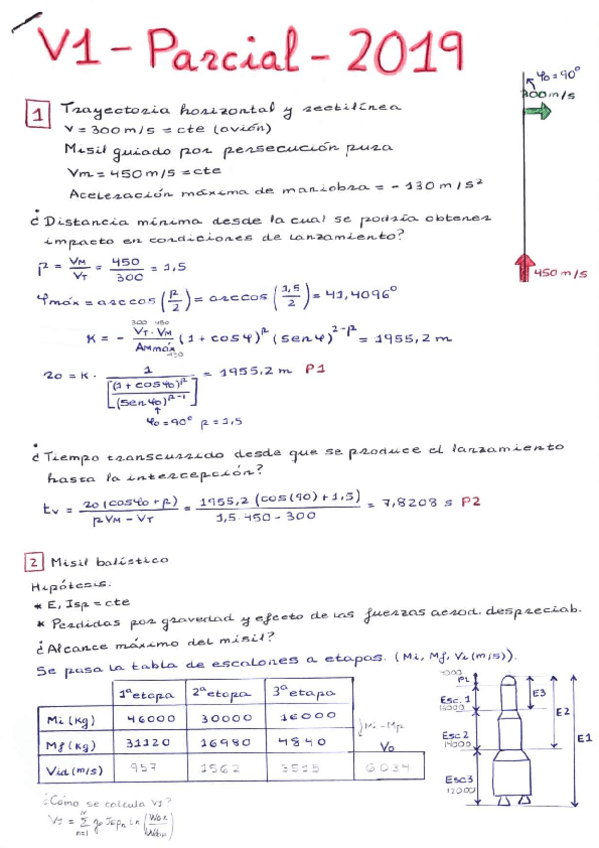 V1 - Parcial - 2019
φ0 = 90°
300 m/s
1 Trayectoria horizontal y rectilínea
V = 300 m/s = cte (avión)
Misil guiado por persecución pura
VM = 450 m/s = cte
Aceleración máxima de maniobra = -130 m/s²
450 m/s
¿Distancia mínima desde la cual se podría obtener
impacto en condiciones de lanzamiento?
P = VM/VT = 450/300 = 1,5
φmáx = arccos (P/2) = arccos (1,5/2) = 41,4096°
300 450
K = - VT · VM / AMmáx (1 + cosφ)^P (senφ)^2-P = 1955,2 m
-130
r0 = K · 1 / [(1 + cosφ0)^P / (senφ0)^P-1] = 1955,2 m P1
φ0 = 90° P = 1,5
¿Tiempo transcurrido desde que se produce el lanzamiento
hasta la intercepción?
tv = r0 (cosφ0 + P) / P VM - VT = 1955,2 (cos(90) + 1,5) / 1,5 · 450 - 300 = 7,8208 s P2
2 Misil balístico
Hipótesis:
* E, Isp = cte
* Perdidas por gravedad y efecto de las fuerzas aerod. despreciab.
¿Alcance máximo del misil?
Se pasa la tabla de escalones a etapas. (Mi, Mf, Vi (m/s)).
1ª etapa 2ª etapa 3ª etapa
Mi (Kg) 46000 30000 16000
Mi - Mp
Mf (Kg) 31120 16980 4840
V0
Vid (m/s) 957 1562 3515 6034
PL
Esc. 1
16000
Esc 2
14000
Esc 3
12000
E3
E2
E1
¿Cómo se calcula VI?
VI = N Σ n=1 g0 Ispn Ln (W0n / Wbn)